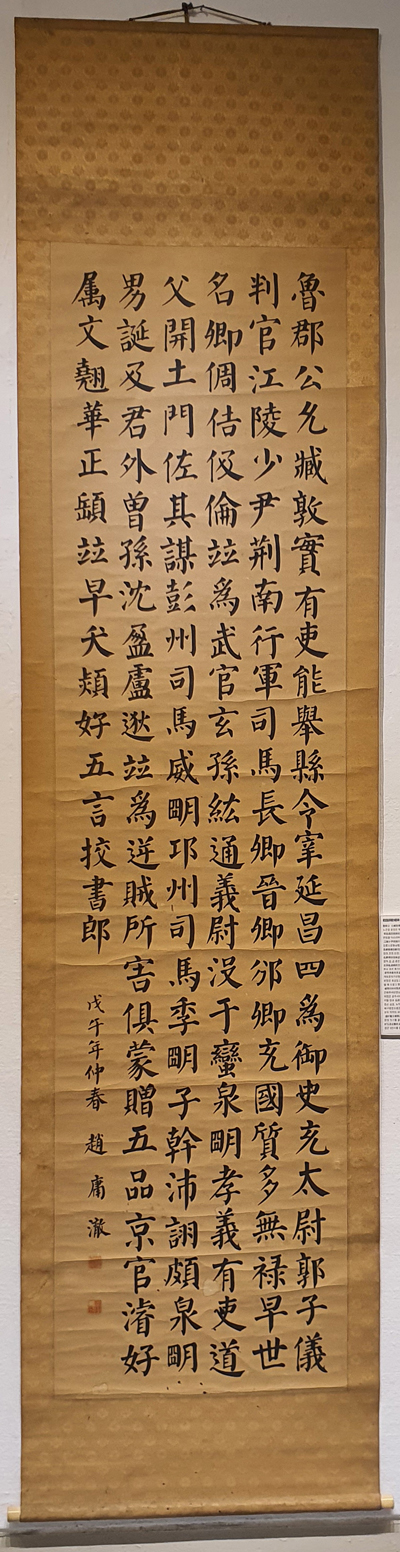 魯郡公允臧敦實有吏能舉縣令宰延昌四爲御史充太尉郭子儀
判官江陵少尹荆南行軍司馬長卿晉卿邠卿充國質多無禄早世
名卿倜佶伋倫竝爲武官玄孫紘通義尉没于蠻泉明孝義有吏道
父開土門佐其謀彭州司馬威明邛州司馬季明子幹沛詡頗泉明
男誕及君外曾孫沈盈盧逖竝爲逆賊所害俱蒙贈五品京官濬好
属文翹華正頣竝早夭熲好五言挍書郎
戊午年仲春 趙庸澈